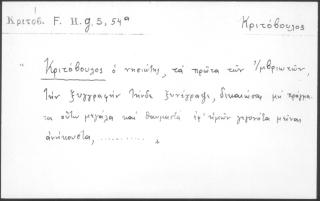 Κριτοβ. F. H. g. 5, 54ᵃ
Κριτόβουλος
" Κριτόβουλος ὁ νησιώτης, τὰ πρῶτα τῶν Ἰμβριωτῶν,
τὴν ξυγγραφὴν τήνδε ξυνέγραψε, δικαιώσας μὴ πράγμα-
τα οὕτω μεγάλα καὶ θαυμαστὰ ἐφ' ἡμῶν γεγονότα μεῖναι
ἀνήκουστα, ............